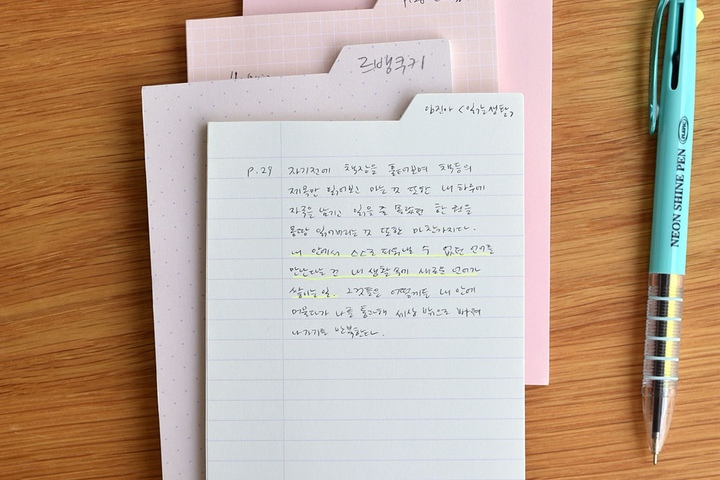 르뱅쿠키
임진아 <읽는생활>
p.29 자기전에 책장을 훑어보며 책들의
제목만 읽어보고 아는 것 또한 내 하루에
자국을 남기고 읽을 줄 몰랐던 한 권을
몽땅 읽어버리는 것 또한 마찬가지다.
내 안에서 스스로 틔워낼 수 없던 언어를
만난다는 건 내 생활 속에 새로운 언어가
쌓이는 일. 그것들은 어떻게든 내 안에
머물다가 나를 통과해 세상 밖으로
나가기를 반복한다.
NEON SHINE PEN